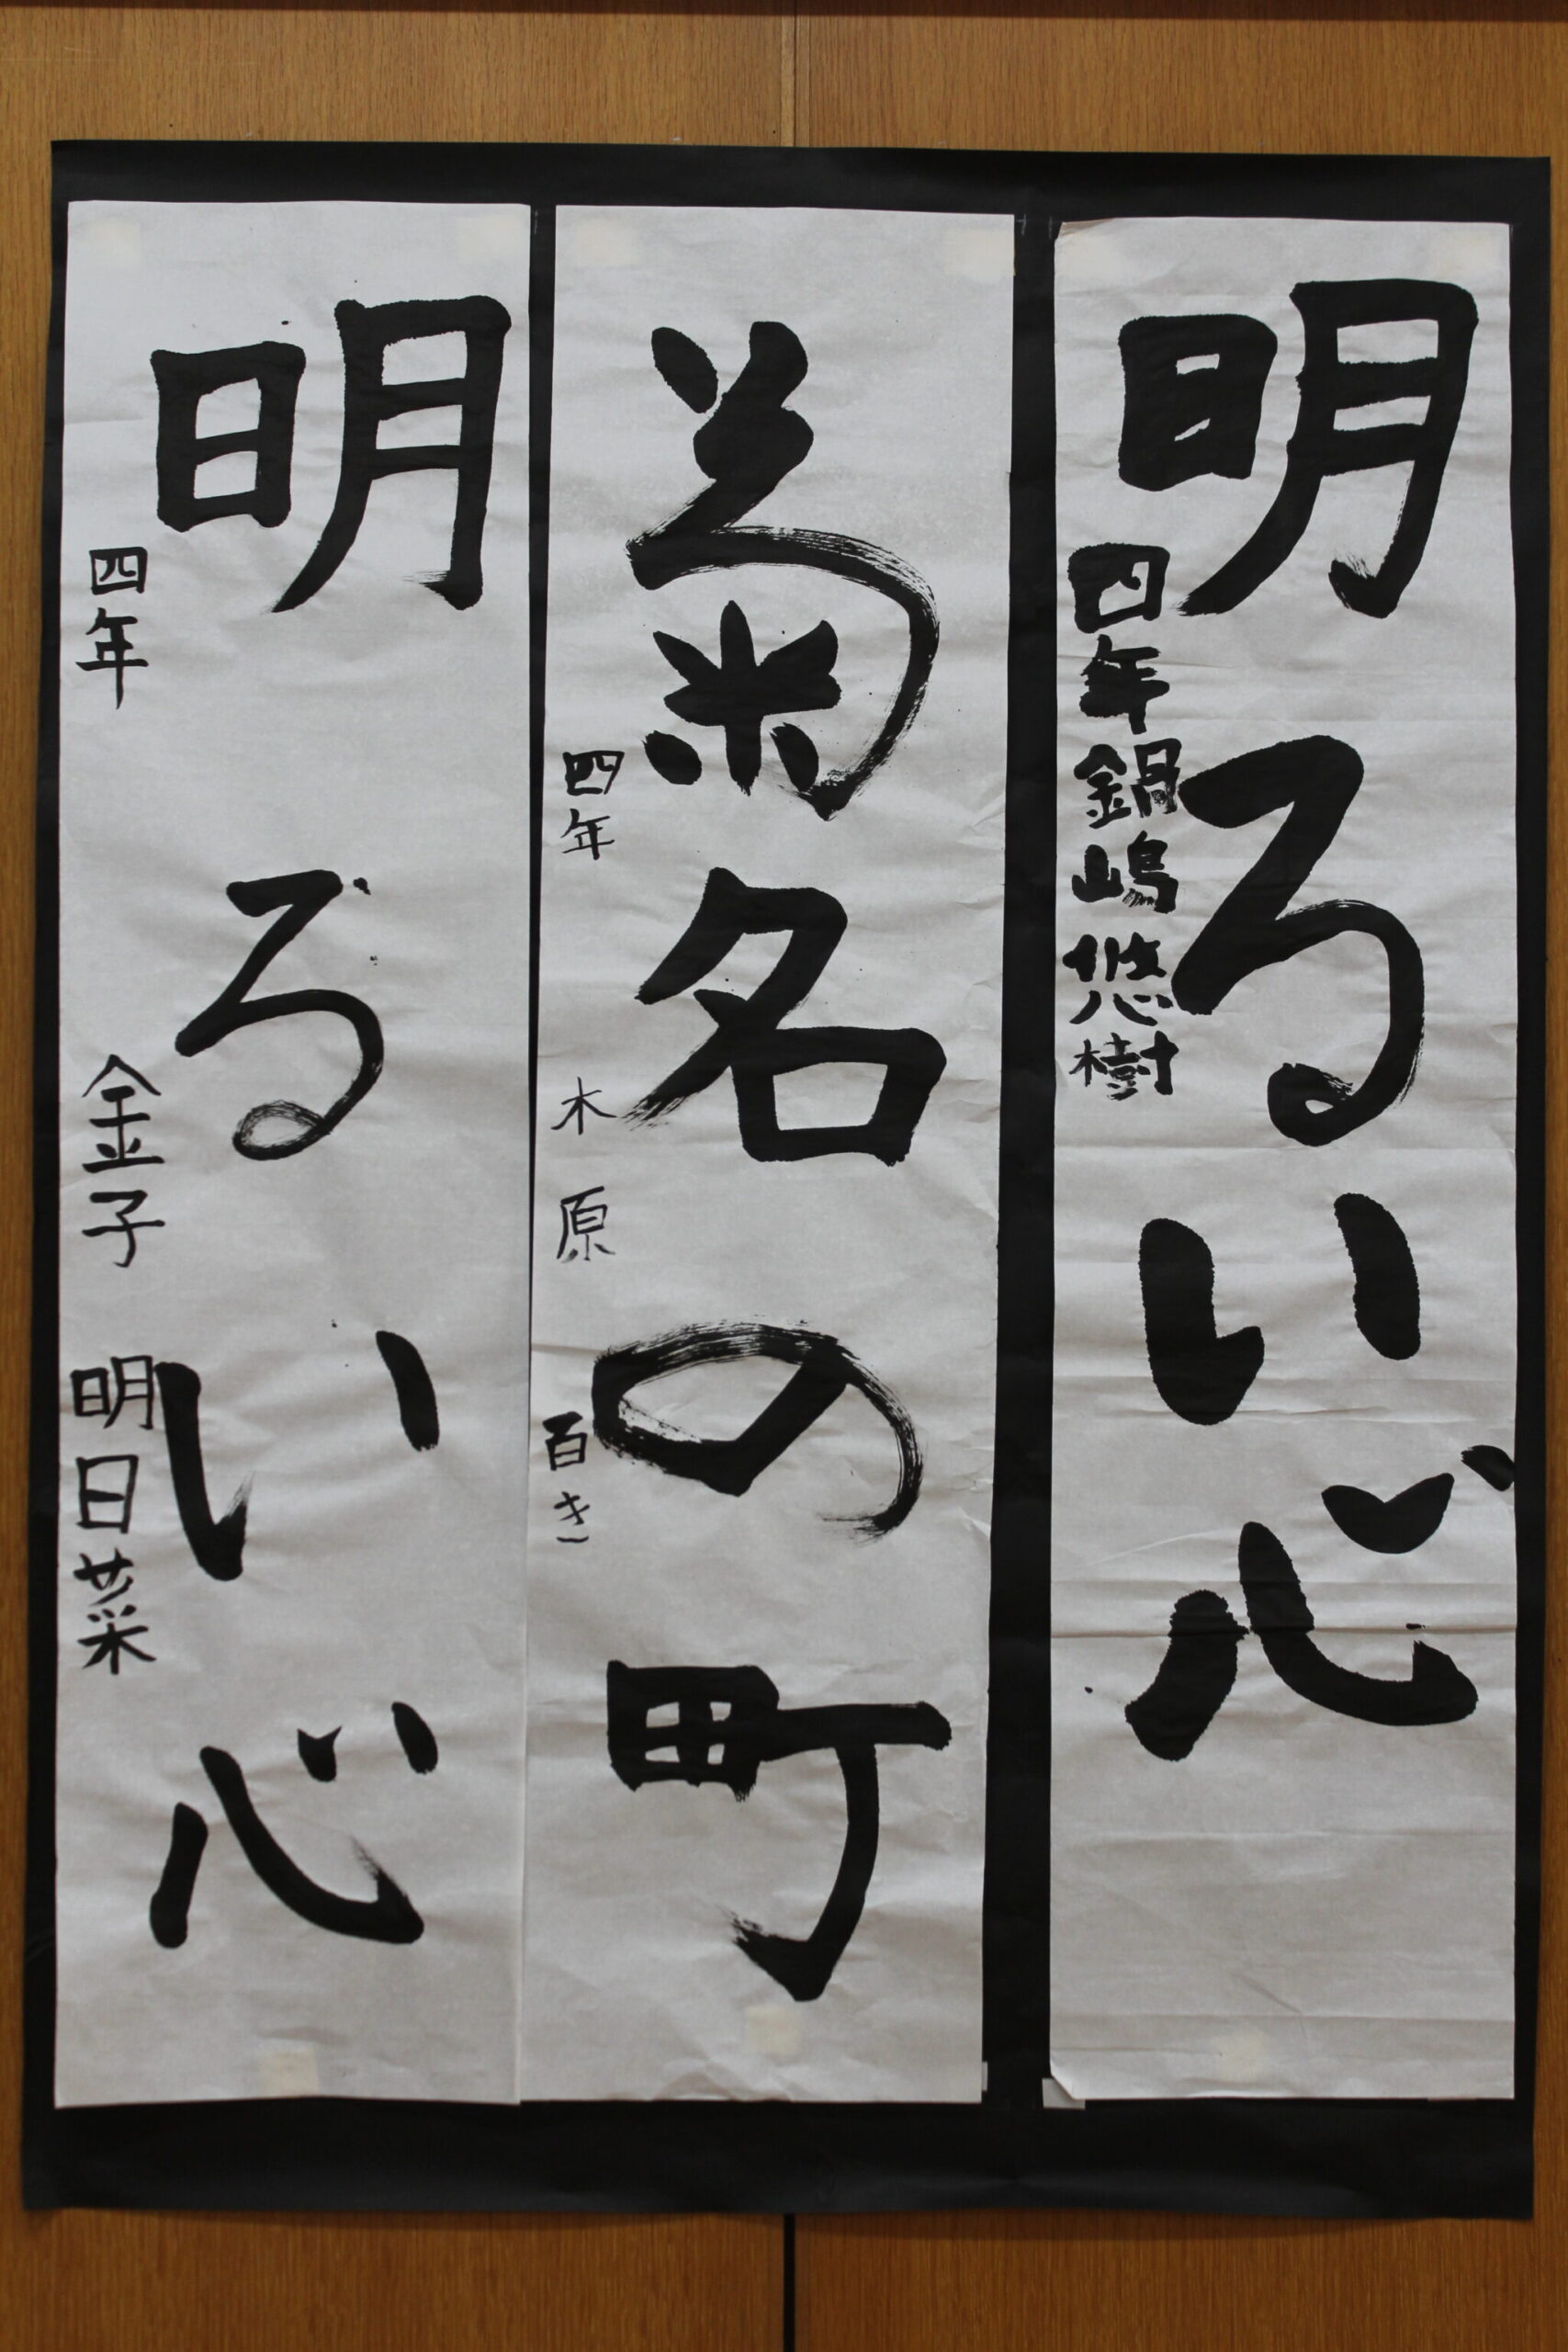 明るい心
四年鍋嶋悠樹
菊名の町
四年 木原 百き
明るい心
四年 金子 明日菜